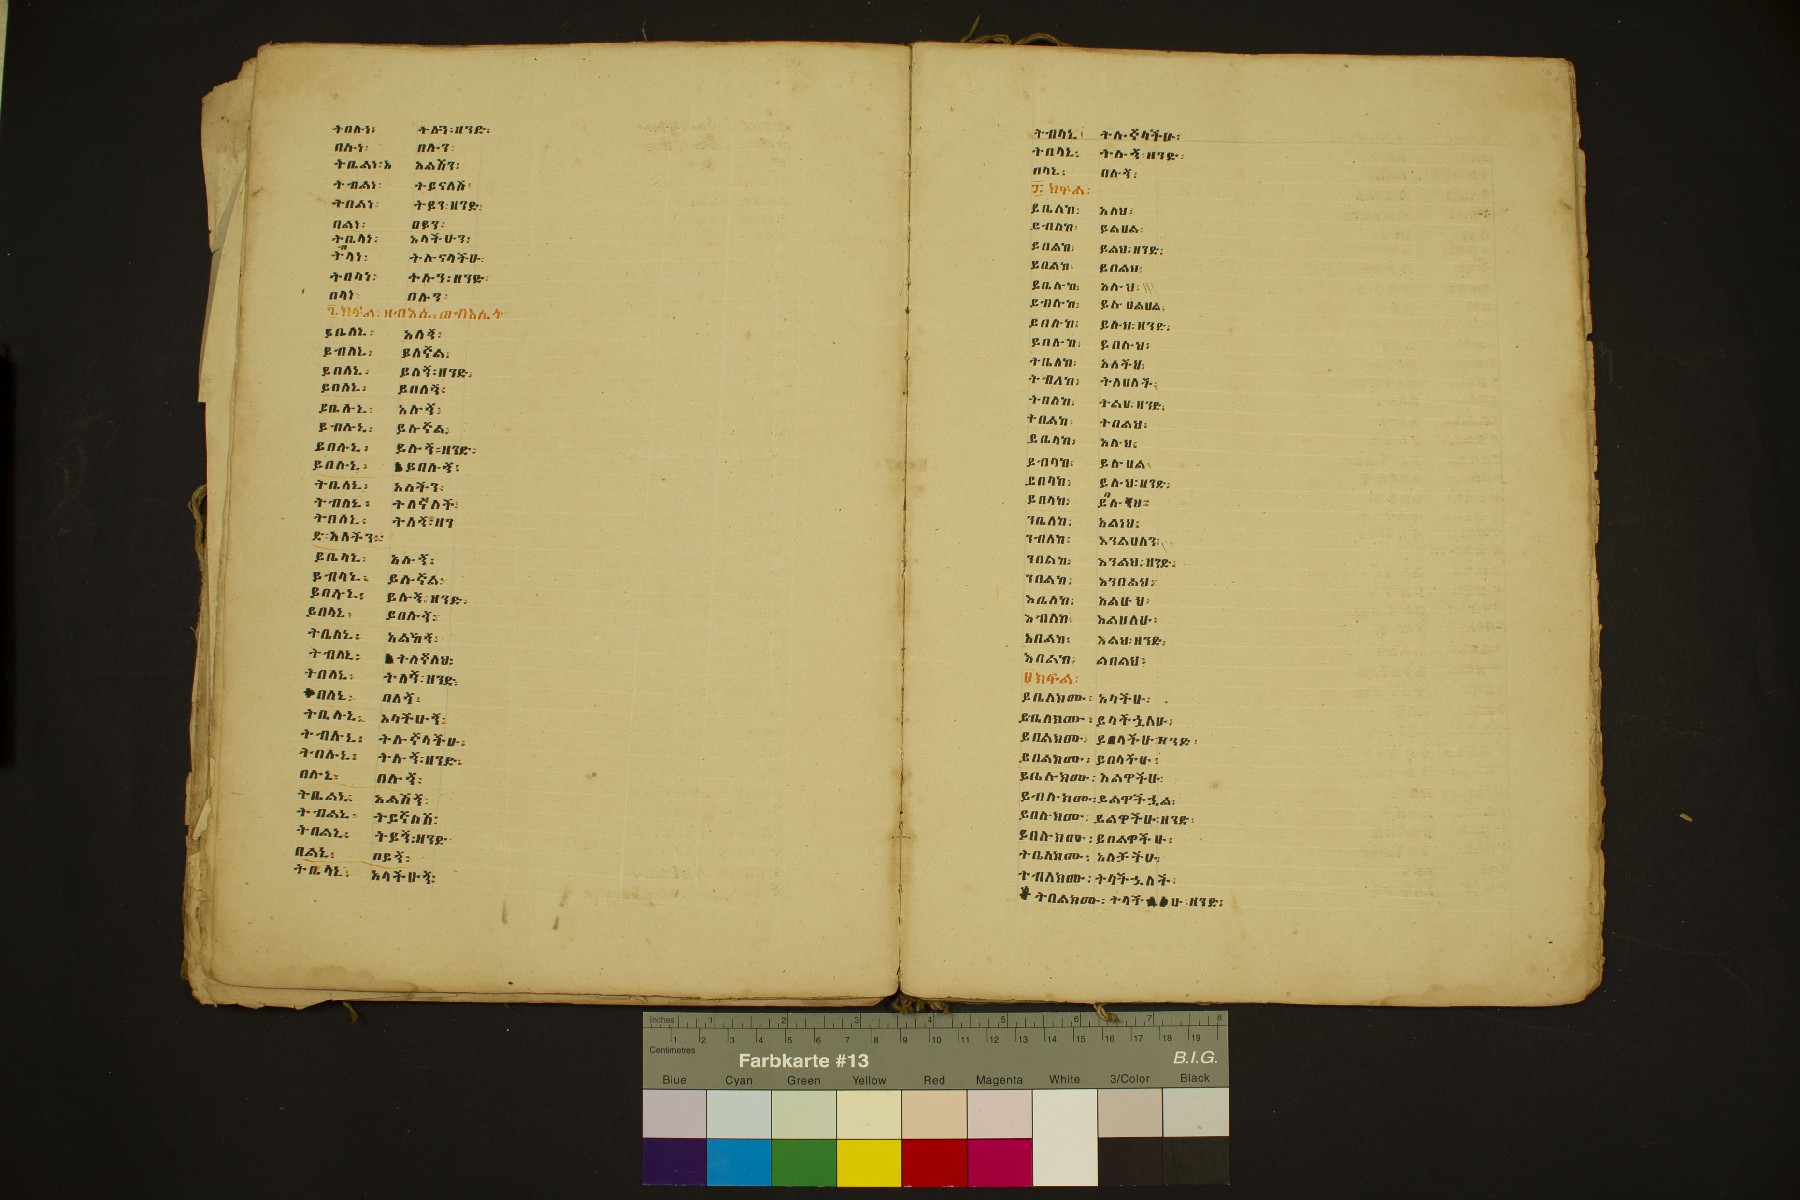 ትበሉነ፡ ትሉን፡ዘንድ፡
በሉነ፡ በሉን፡
ትቤልነ፡ አልሽን፡
ትብልነ፡ ትይናለሽ፡
ትበልነ፡ ትይን፡ዘንድ፡
በልነ፡ በይን፡
ትቤላነ፡ አላችሁን፡
ትላነ፡ ትሉናላችሁ፡
ትበላነ፡ ትሉን፡ዘንድ፡
በላነ፡ በሉን፡
፯ክፍል፡ዘብእሲ፡ወብእሲት
ይቤለኒ፡ አለኝ፡
ይብለኒ፡ ይለኛል፡
ይበለኒ፡ ይለኝ፡ዘንድ፡
ይበለኒ፡ ይበለኝ፡
ይቤሉኒ፡ አሉኝ፡
ይብሉኒ፡ ይሉኛል፡
ይበሉኒ፡ ይሉኝ፡ዘንድ፡
ይበሉኒ፡ ይበሉኝ፡
ትቤለኒ፡ አለችን፡
ትብለኒ፡ ትለኛለች፡
ትበለኒ፡ ትለኝ፡ዘን
ድ፡አለችን፡
ይቤላኒ፡ አሉኝ፡
ይብላኒ፡ ይሉኛል፡
ይበሉኒ፡ ይሉኝ፡ዘንድ፡
ይበላኒ፡ ይበሉኝ፡
ትቤለኒ፡ አልኸኝ፡
ትብለኒ፡ ትለኛለህ፡
ትበለኒ፡ ትለኝ፡ዘንድ፡
በለኒ፡ በለኝ፡
ትቤሉኒ፡ አላችሁኝ፡
ትብሉኒ፡ ትሉኛላችሁ፡
ትበሉኒ፡ ትሉኝ፡ዘንድ፡
በሉኒ፡ በሉኝ፡
ትቤልኒ፡ አልሽኝ፡
ትብልኒ፡ ትይኛለሽ፡
ትበልኒ፡ ትይኝ፡ዘንድ፡
በልኒ፡ በይኝ፡
ትቤላኒ፡ አላችሁኝ፡
ትብላኒ፡ ትሉኛላችሁ፡
ትበላኒ፡ ትሉኝ፡ዘንድ፡
በላኒ፡ በሉኝ፡
፰ክፍል፡
ይቤለከ፡ አለህ፡
ይብለከ፡ ይልሀል፡
ይበልከ፡ ይልህ፡ዘንድ፡
ይበልከ፡ ይበልህ፡
ይቤሉከ፡ አሉህ፡
ይብሉከ፡ ይሉሀልሀል፡
ይበሉከ፡ ይሉህ፡ዘንድ፡
ይበሉከ፡ ይበሉህ፡
ትቤለከ፡ አለችህ፡
ትብለከ፡ ትለሀለች፡
ትበለከ፡ ትልህ፡ዘንድ፡
ትበልከ፡ ትበልህ፡
ይቤላከ፡ አሉህ፡
ይብላከ፡ ይሉሀል፡
ይበላከ፡ ይሉህ፡ዘንድ፡
ይበላከ፡
ንቤለከ፡ አልነህ፡
ንብለከ፡ እንልሀለን፡
ንበልከ፡ እንልህ፡ዘንድ፡
ንበልከ፡ እንበልህ፡
እቤለከ፡ አልሁህ፡
እብለከ፡ እልሀለሁ፡
እበልከ፡ እልህ፡ዘንድ፡
እበልከ፡ ልበልህ፡
፱ክፍል፡
ይቤለክሙ፡ አላችሁ፡
ይቤለክሙ፡ ይላችኋለሁ፡
ይበልክሙ፡ ይላችሁ፡ዘንድ፡
ይበልክሙ፡ ይበላችሁ፡
ይቤሉክሙ፡ አልዋችሁ፡
ይብሉክሙ፡ ይልዋችኋል፡
ይበሉክሙ፡ ይልዋችሁ፡ዘንድ፡
ይበሉክሙ፡ ይበልዋችሁ፡
ትቤለክሙ፡ አለቻችሁ፡
ትብለክሙ፡ ትላችኋለች፡
ትበልክሙ፡ ትላችሁ፡ዘንድ፡